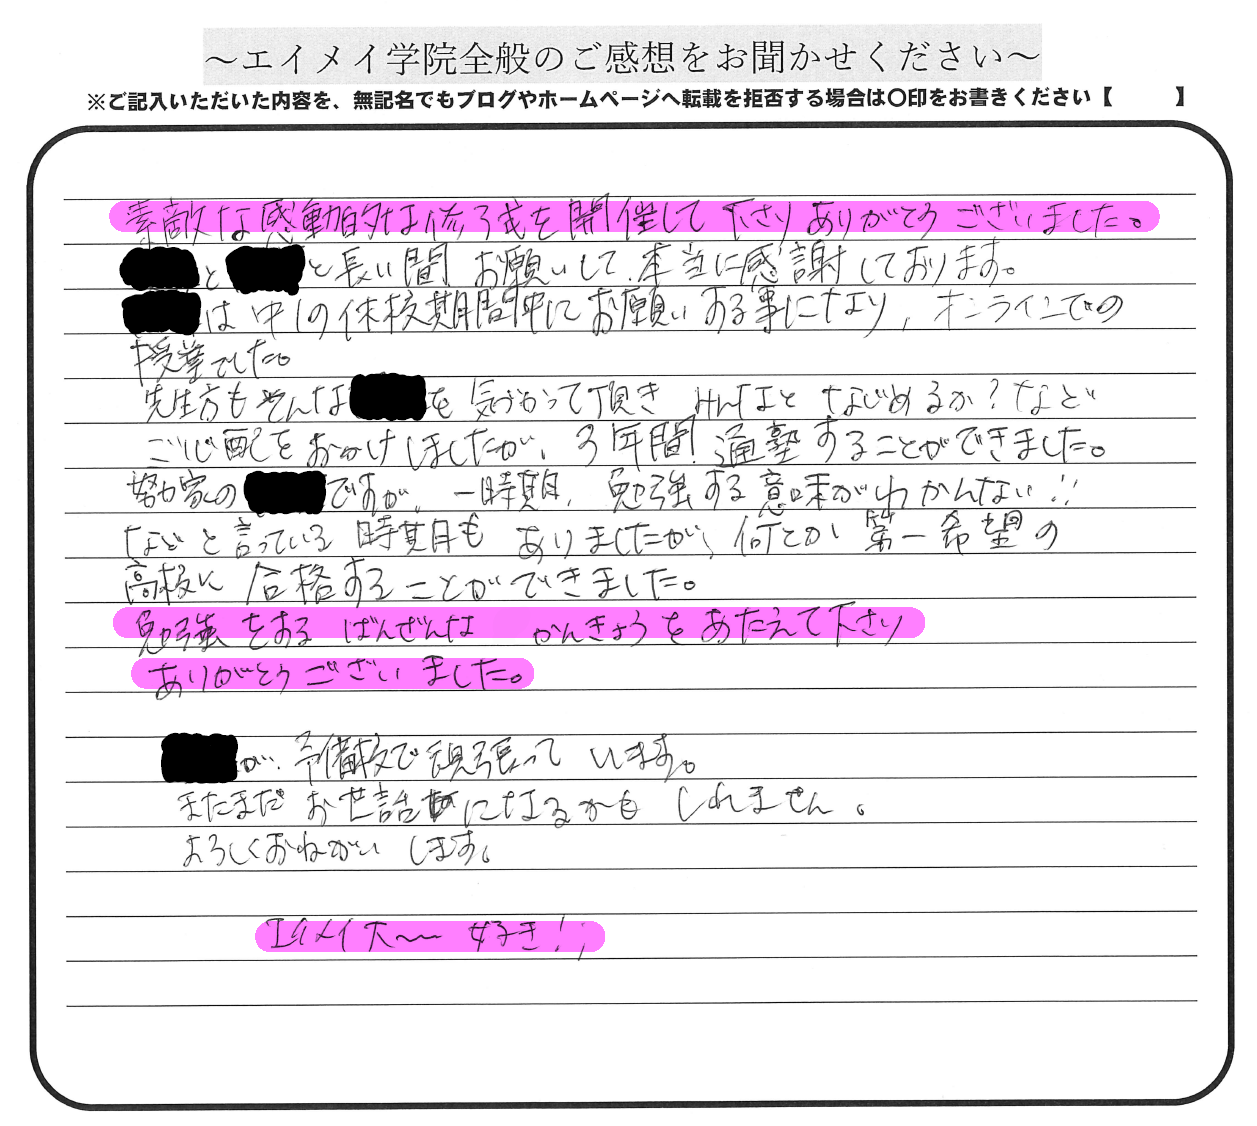 ～エイメイ学院全般のご感想をお聞かせください～
※ご記入いただいた内容を、無記名でもブログやホームページへ転載を拒否する場合は〇印をお書きください【　　　】
素敵な感動的な修了式を開催して下さりありがとうございました。
と と長い間 お願いして、本当に感謝しております。
は中1の休校期間中にお願いする事になり、オンラインでの
授業でした。
先生方もそんな を気づかって頂き みんなと なじめるか？など
ご心配をおかけしましたが、3年間 通塾することができました。
努力家の ですが、一時期、勉強する意味がわかんない!!
などと言っている時期も ありましたが、何とか第一希望の
高校に 合格することができました。
勉強をする ばんぜんな かんきょうをあたえて下さり
ありがとうございました。
が、予備校で頑張って います。
まだまだ お世話 になるかも しれません。
よろしくおねがい します。
エイメイ大〜〜 好き!!